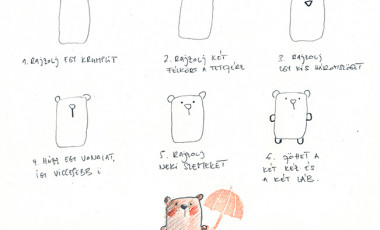 1. RAJZOLJ EGY KRUMPLIT
2. RAJZOLJ KÉT
FÉLKÖRT A TETEJÉRE
3. RAJZOLJ
EGY KIS HÁROMSZÖGET
4. HÚZZ EGY VONALAT,
ÍGY VICCESEBB :
5. RAJZOLJ
NEKI SZEMEKET
6. JÖHET A
KÉT KÉZ ÉS
A KÉT LÁB.